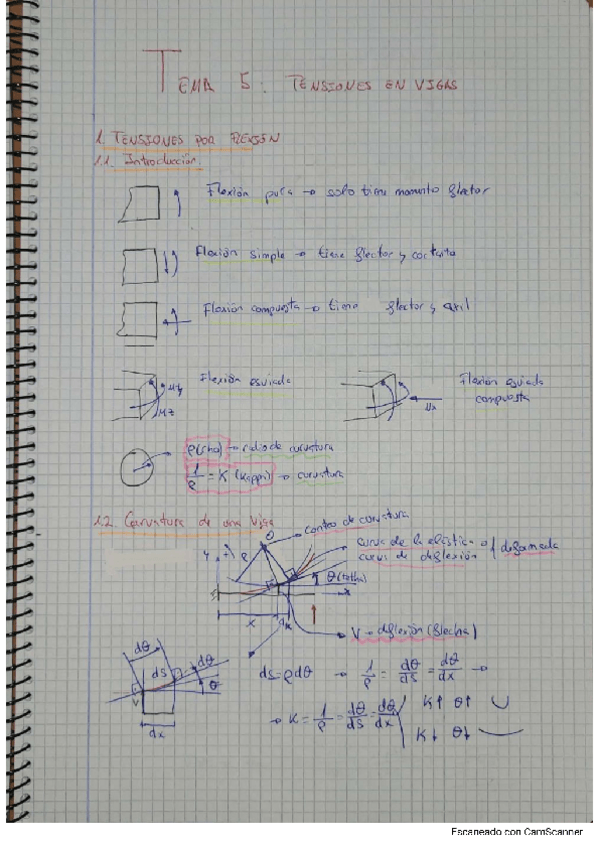 TEMA 5: TENSIONES EN VIGAS
1. TENSIONES POR FLEXIÓN
1.1. Introducción.
Flexión pura → solo tiene momento flector
Flexión simple → tiene flector y cortante
Flexión compuesta → tiene flector y axil
My
Mz
Flexión esviada
Nx
Flexión esviada
compuesta
ρ(rho) → radio de curvatura
1/ρ = K (kappa) → curvatura
1.2. Curvatura de una viga
O → centro de curvatura
curva de la elástica o / deformada
curva de deflexión
y
ρ
θ (tetha)
x
x
dx
V → deflexión (flecha)
dθ
ds
dθ
θ
V
dx
ds = ρdθ → 1/ρ = dθ/ds = dθ/dx →
→ K = 1/ρ = dθ/ds = dθ/dx
K↑ θ↑
K↓ θ↓
Escaneado con CamScanner